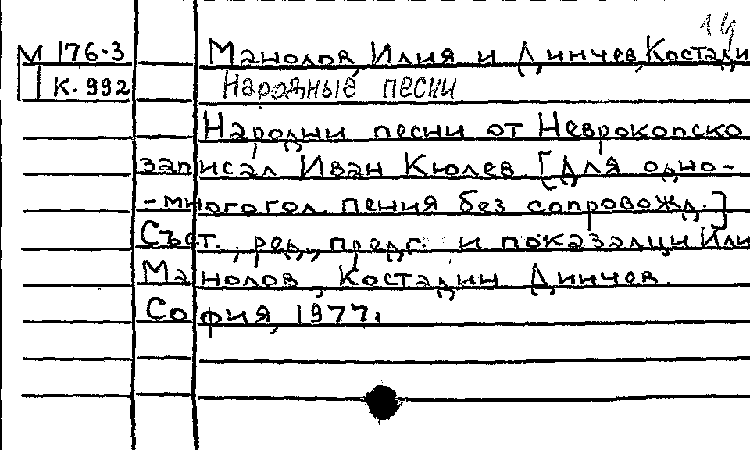 14
М 176-3 Манолов, Илия и Динчев, Костади
К. 992 Народные песни
Народни песни от Неврокопско
записал Иван Кюлев. [Для одно-
-многогол. пения без сопровожд.]
Съст., ред., предг. и показалци Или
Манолов, Костадин Динчев.
София, 1977.